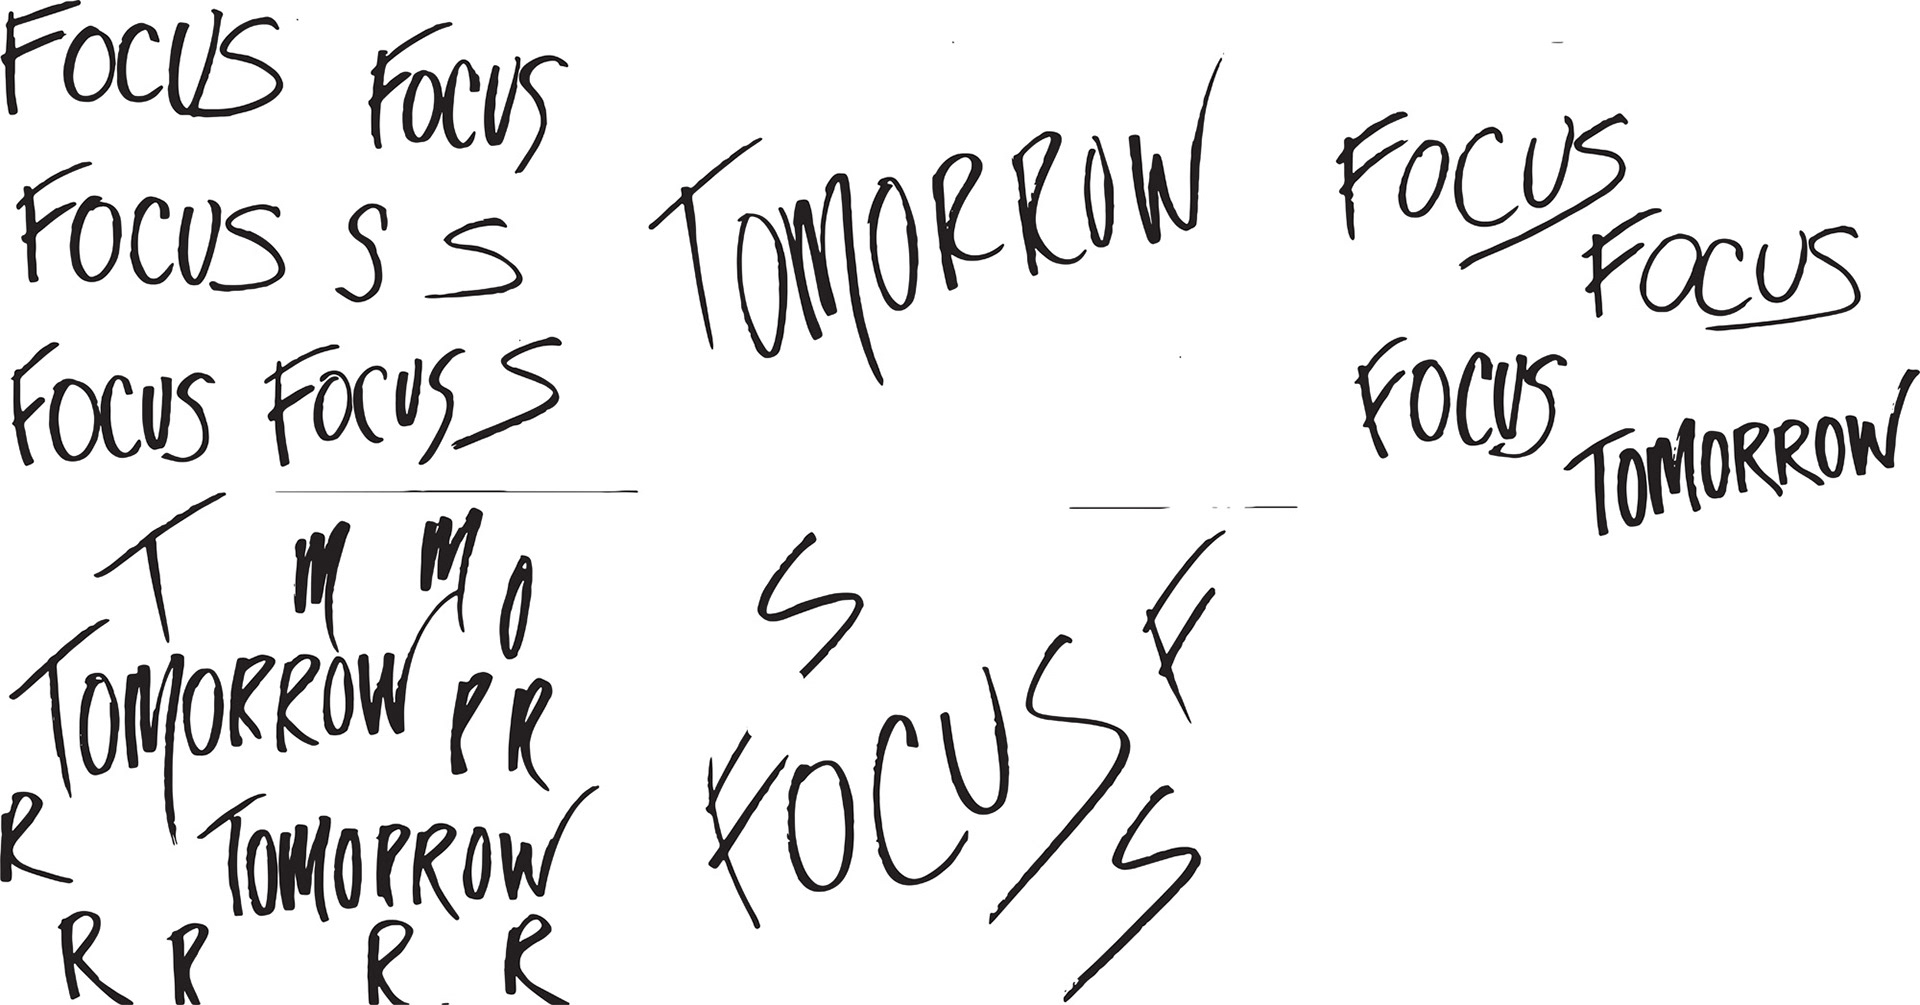 FOCUS
FOCUS
FOCUS S S
FOCUS FOCUS S
T M M O
TOMORROW
P R
R
TOMOPROW
R R R R
TOMORROW
S
F
FOCUS
S
FOCUS
FOCUS
FOCUS
TOMORROW